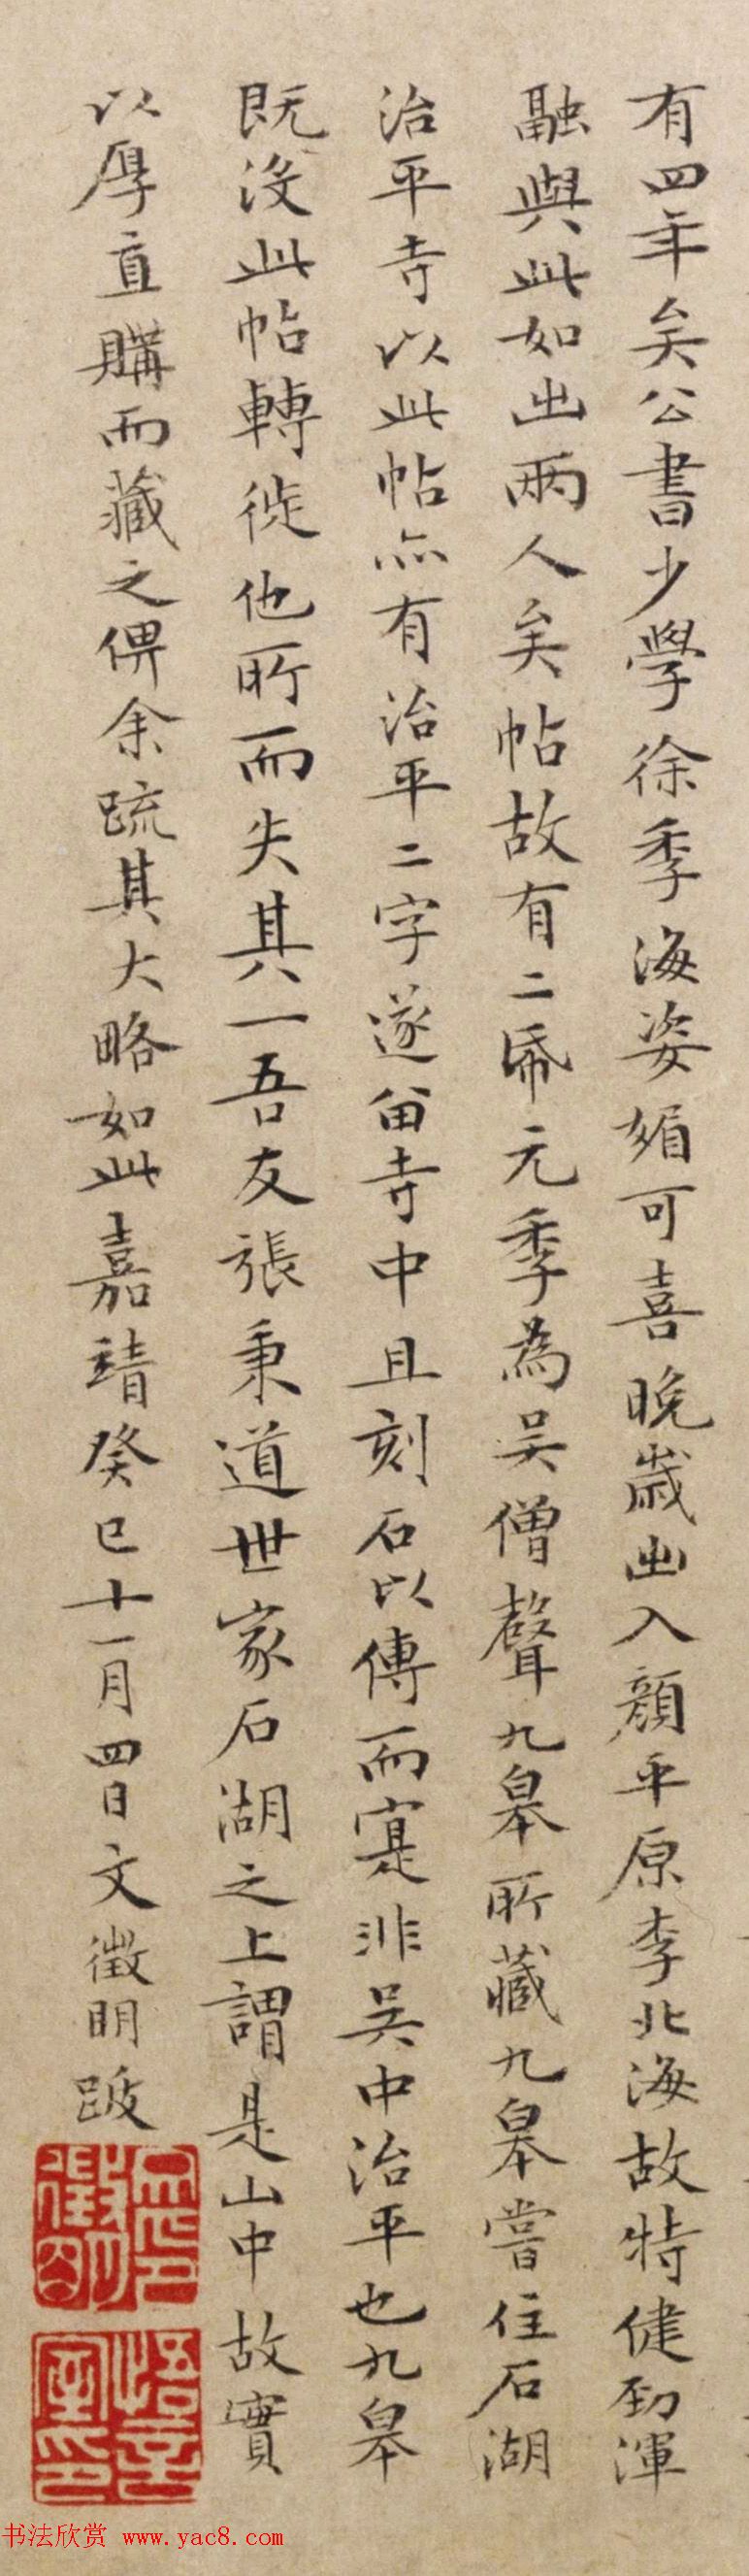 有四年矣公書少學徐季海姿媚可喜晚歲出入顏平原李北海故特健勁渾
融與此如出兩人矣帖故有二帋元季為吳僧聲九皋所藏九皋嘗住石湖
治平寺以此帖亦有治平二字遂留寺中且刻石以傳而寔非吳中治平也九皋
既沒此帖轉徙他所而失其一吾友張秉道世家石湖之上謂是山中故實
以厚直購而藏之俾余疏其大略如此嘉靖癸巳十一月四日文徵明跋
徵明印
悟言室印
书法欣赏 www.yac8.com